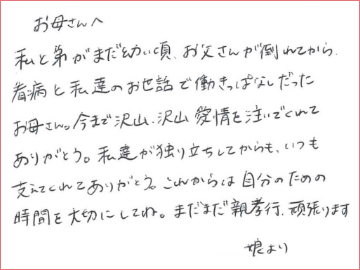 お母さんへ
私と弟がまだ幼い頃、お父さんが倒れてから、
看病と私達のお世話で働きっぱなしだった
お母さん。今まで沢山、沢山愛情を注いでくれて
ありがとう。私達が独り立ちしてからも、いつも
支えてくれてありがとう。これからは自分のための
時間を大切にしてね。まだまだ親孝行、頑張ります
娘より